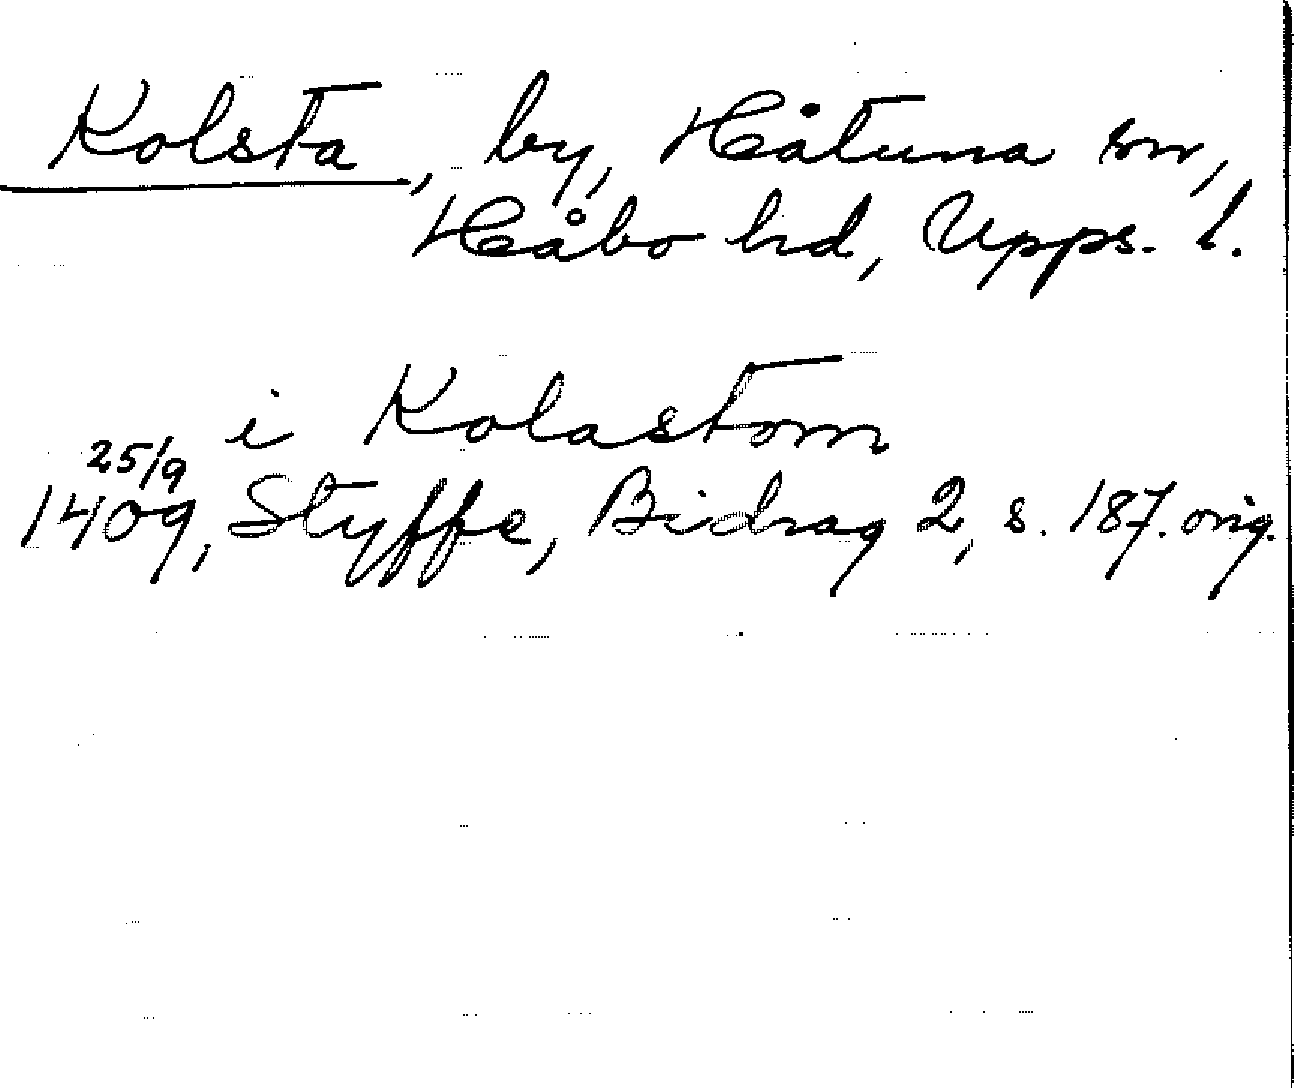 Kolsta, by, Håtuna sn,
Håbo hd, Upps. l.
i Kolastom
25/9
1409, Styffe, Bidrag 2, s. 187. orig.